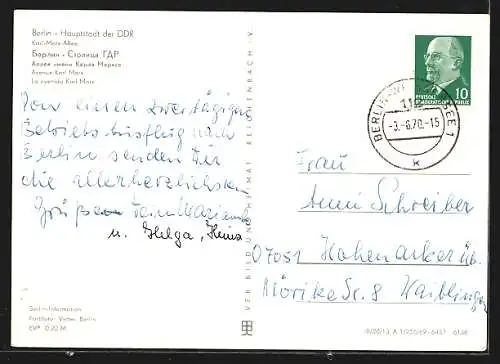 Berlin - Hauptstadt der DDR
Karl-Marx-Allee
Берлин - Столица ГДР
Аллея имени Карла Маркса
Avenue Karl Marx
La avenida Karl Marx
Von einem zweitägigen
Betriebsausflug nach
Berlin senden Dir
die allerherzlichsten
Grüße Deine Marianne
u. Helga, Heinz
Berlin-Information
Bartkowiak
EVP 0,20 M
VEB BILD UND HEIMAT REICHENBACH i. V.
DEUTSCHE
DEMOKRATISCHE REPUBLIK
10
BERLIN-WEISSENSEE 1
112
-3.-6.70.-15
k
Frau
Anni Schreiber
07051 Hohenacker üb.
Mörike Str. 8 Waiblingen